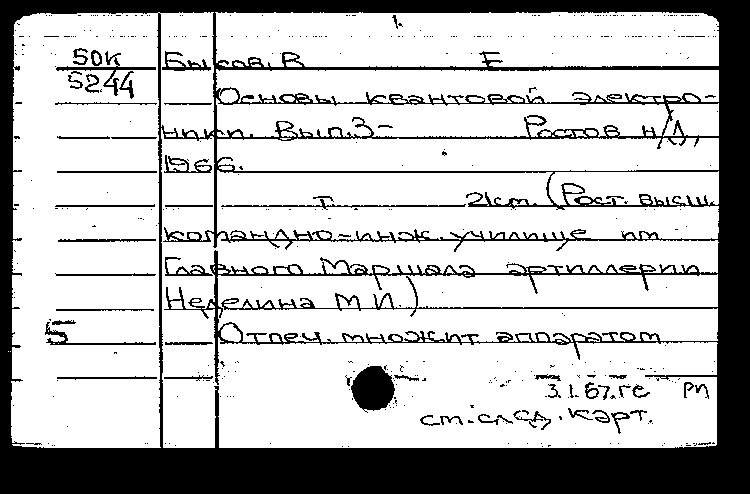 1.
50К Бысов, В Е
5244
Основы квантовой электро-
ники. Вып.3- Ростов н/Д,
1966.
т 21см. (Рост. высш.
командно-инж. училище им
Главного Маршала артиллерии
Неделина М И.)
5 Отпеч. множит аппаратом
3.1.67.ге РП
см. след. карт.